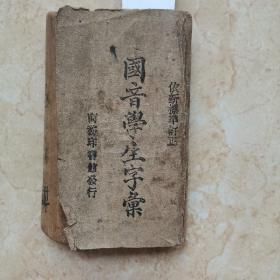 依新標準訂正
國音學生字彙
商務印書館發行